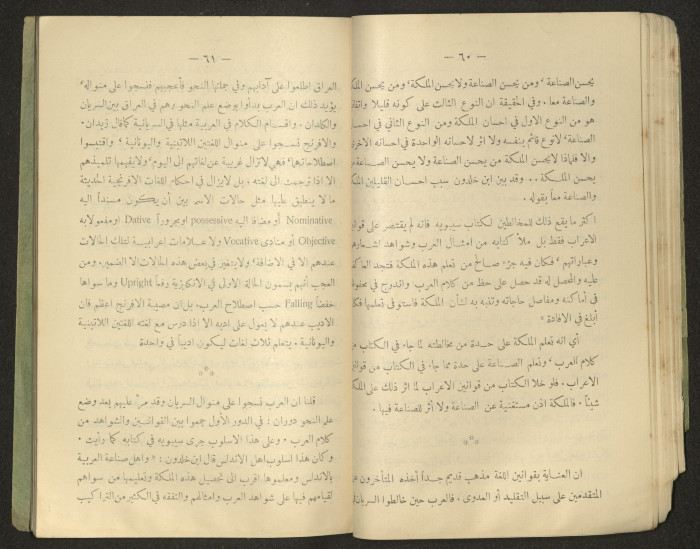 — ٦٠ —
يحسن الصناعة ، ومن يحسن الصناعة ولا يحسن الملكة ، ومن يحسن
والصناعة معاً . وفي الحقيقة ان النوع الثالث على كونه قليلاً
هو من النوع الاول في احسان الملكة ومن النوع الثاني في
الصناعة ، لا نوع قائم بنفسه ولا اثر لاحسانه الواحدة في احسانه
والا فلماذا لا يحسن الملكة من يحسن الصناعة ولا يحسن
يحسن الملكة . . وقد بين ابن خلدون سبب احسان القليلين
والصناعة معاً بقوله .
اكثر ما يقع ذلك للمخالطين لكتاب سيبويه فانه لم يقتصر على
الاعراب فقط بل ملأ كتابه من امثال العرب وشواهد
وعباراتهم ، فكان فيه جزء صالح من تعلم هذه الملكة فتجد
عليه والمحصل له قد حصل على حظ من كلام العرب واندرج في
في أماكنه ومفاصل حاجاته وتنبه به لشأن الملكة فاستوفى تعلمها
أبلغ في الافادة »
أي انه تعلم الملكة على حدة من مخالطته لما جاء في الكتاب
كلام للعرب ، وتعلم الصناعة على حدة مما جاء في الكتاب من
الاعراب . فلو خلا الكتاب من قوانين الاعراب لما اثر ذلك على
شيئاً . فالملكة اذن مستغنية عن الصناعة ولا أثر للصناعة فيها .
***
ان العناية بقوانين اللغة مذهب قديم جداً أخذه المتأخرون
المتقدمين على سبيل التقليد أو العدوى . فالعرب حين خالطوا السريان
— ٦١ —
العراق اطلعوا على آدابهم وفي جملتها النحو فأعجبهم فنسجوا على منواله ،
يؤيد ذلك ان العرب بدأوا بوضع علم النحو وهم في العراق بين السريان
والكلدان . واقسام الكلام في العربية مثلها في السريانية كما قال زيدان .
والافرنج نسجوا على منوال اللغتين اللاتينية واليونانية ، واقتبسوا
اصطلاحاتها ، فهي لا تزال غريبة عن لغاتهم الى اليوم ، ولا يفهمها تلميذهم
الا اذا ترجمت الى لغته . بل لا يزال في احكام اللغات الافرنجية الحديثة
ما لا ينطبق عليها مثل حالات الاسم بين أن يكون مسنداً اليه
Nominative أو مضافاً اليه possessive او مجروراً Dative او مفعولاً به
Objective أو منادى Vocative ولا علامات إعرابية لتلك الحالات
عندهم الا في الاضافة ، ولا يتغير في بعض هذه الحالات الا الضمير . ومن
العجب أنهم يسمون الحالة الاولى في الانكليزية رفعاً Upright وما سواها
خفضاً Falling حسب اصطلاح العرب . بل ان مصيبة الافرنج اعظم فان
الاديب عندهم لا يعول على ادبه الا اذا درس مع لغته اللغتين اللاتينية
واليونانية . يتعلم ثلاث لغات ليكون أديباً في واحدة
***
قلنا ان العرب نسجوا على منوال السريان وقد مر عليهم بعد وضع
علم النحو دوران : في الدور الأول جمعوا بين القوانين والشواهد من
كلام العرب . وعلى هذا الاسلوب جرى سيبويه في كتابه كما رأيت .
وكان هذا اسلوب اهل الاندلس قال ابن خلدون : « واهل صناعة العربية
بالاندلس ومعلموها اقرب الى تحصيل هذه الملكة وتعليمها من سواهم
لقيامهم فيها على شواهد العرب وامثالهم والتفقه في الكثير من التراكيب